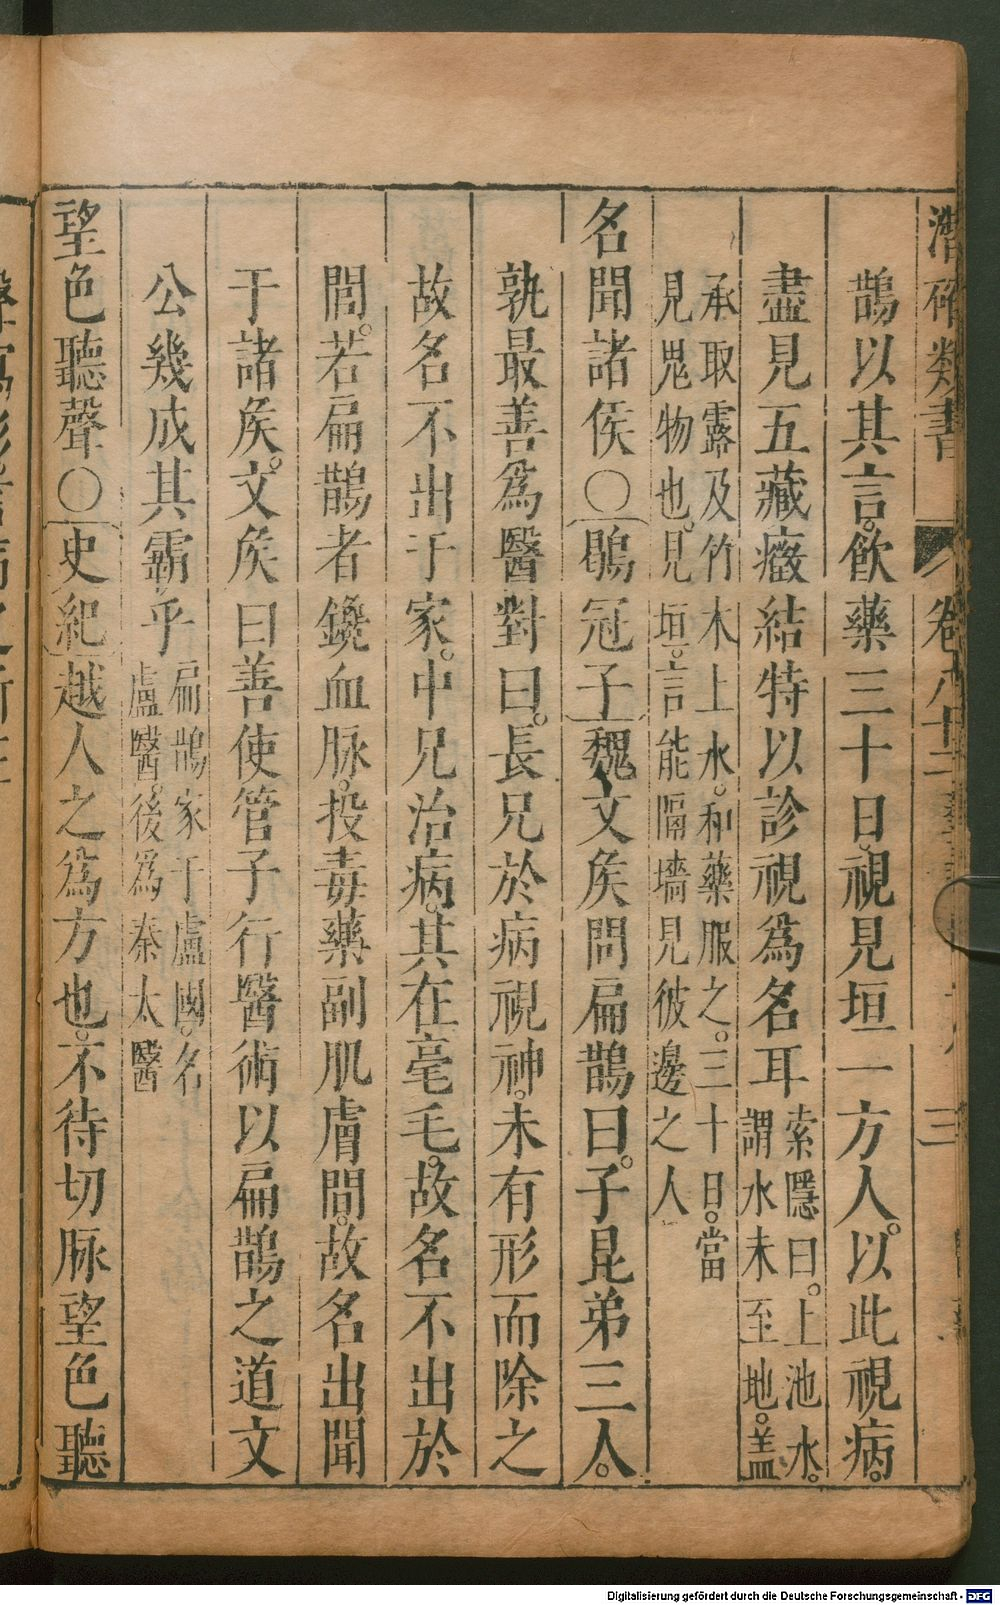 潛確類書 卷八十二 三
鵲以其言飲藥三十日視見垣一方人以此視病
盡見五藏癥結特以診視爲名耳索隱曰上池水
謂水未至地蓋
承取露及竹木上水和藥服之三十日當
見鬼物也見垣言能隔墻見彼邊之人
名聞諸侯〇鶡冠子魏文矦問扁鵲曰子昆弟三人
孰最善爲醫對曰長兄於病視神未有形而除之
故名不出于家中兄治病其在毫毛故名不出於
閭若扁鵲者鑱血脉投毒藥副肌膚間故名出聞
于諸矦文矦曰善使管子行醫術以扁鵲之道文
公幾成其霸乎扁鵲家于盧國名
盧醫後爲秦太醫
望色聽聲〇史紀越人之爲方也不待切脉望色聽
Digitalisierung gefördert durch die Deutsche Forschungsgemeinschaft - DFG